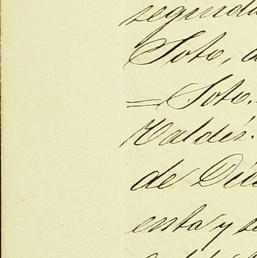 segunda
Soto,
= Soto.
Valdés.
de Di
enta y se